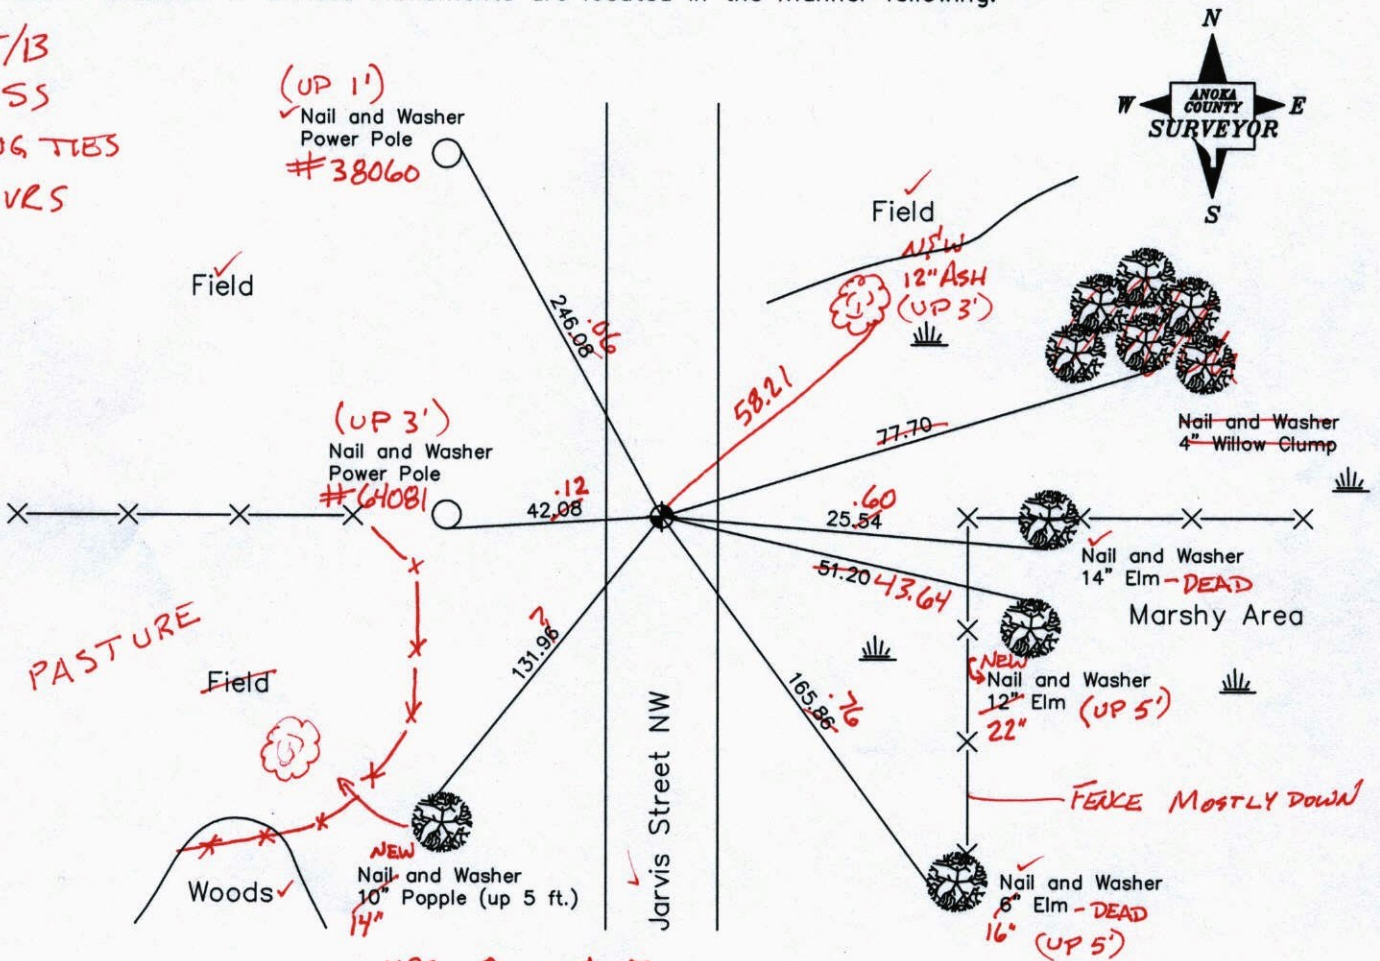 are located in the manner following:
/13
SS
TIES
VRS
(UP 1')
Nail and Washer
Power Pole
#38060
N
W
ANOKA
COUNTY
SURVEYOR
E
S
Field
Field
N&W
12" ASH
(UP 3')
246.08
.06
58.21
77.70
Nail and Washer
4" Willow Clump
(UP 3')
Nail and Washer
Power Pole
#64081
42.08
.12
25.54
.60
51.20
43.64
Nail and Washer
14" Elm - DEAD
Marshy Area
131.96
?
PASTURE
Field
165.86
.76
NEW
Nail and Washer
12" Elm (UP 5')
22"
FENCE MOSTLY DOWN
Jarvis Street NW
NEW
Nail and Washer
10" Popple (up 5 ft.)
14"
Woods
Nail and Washer
6" Elm - DEAD
16"
(UP 5')